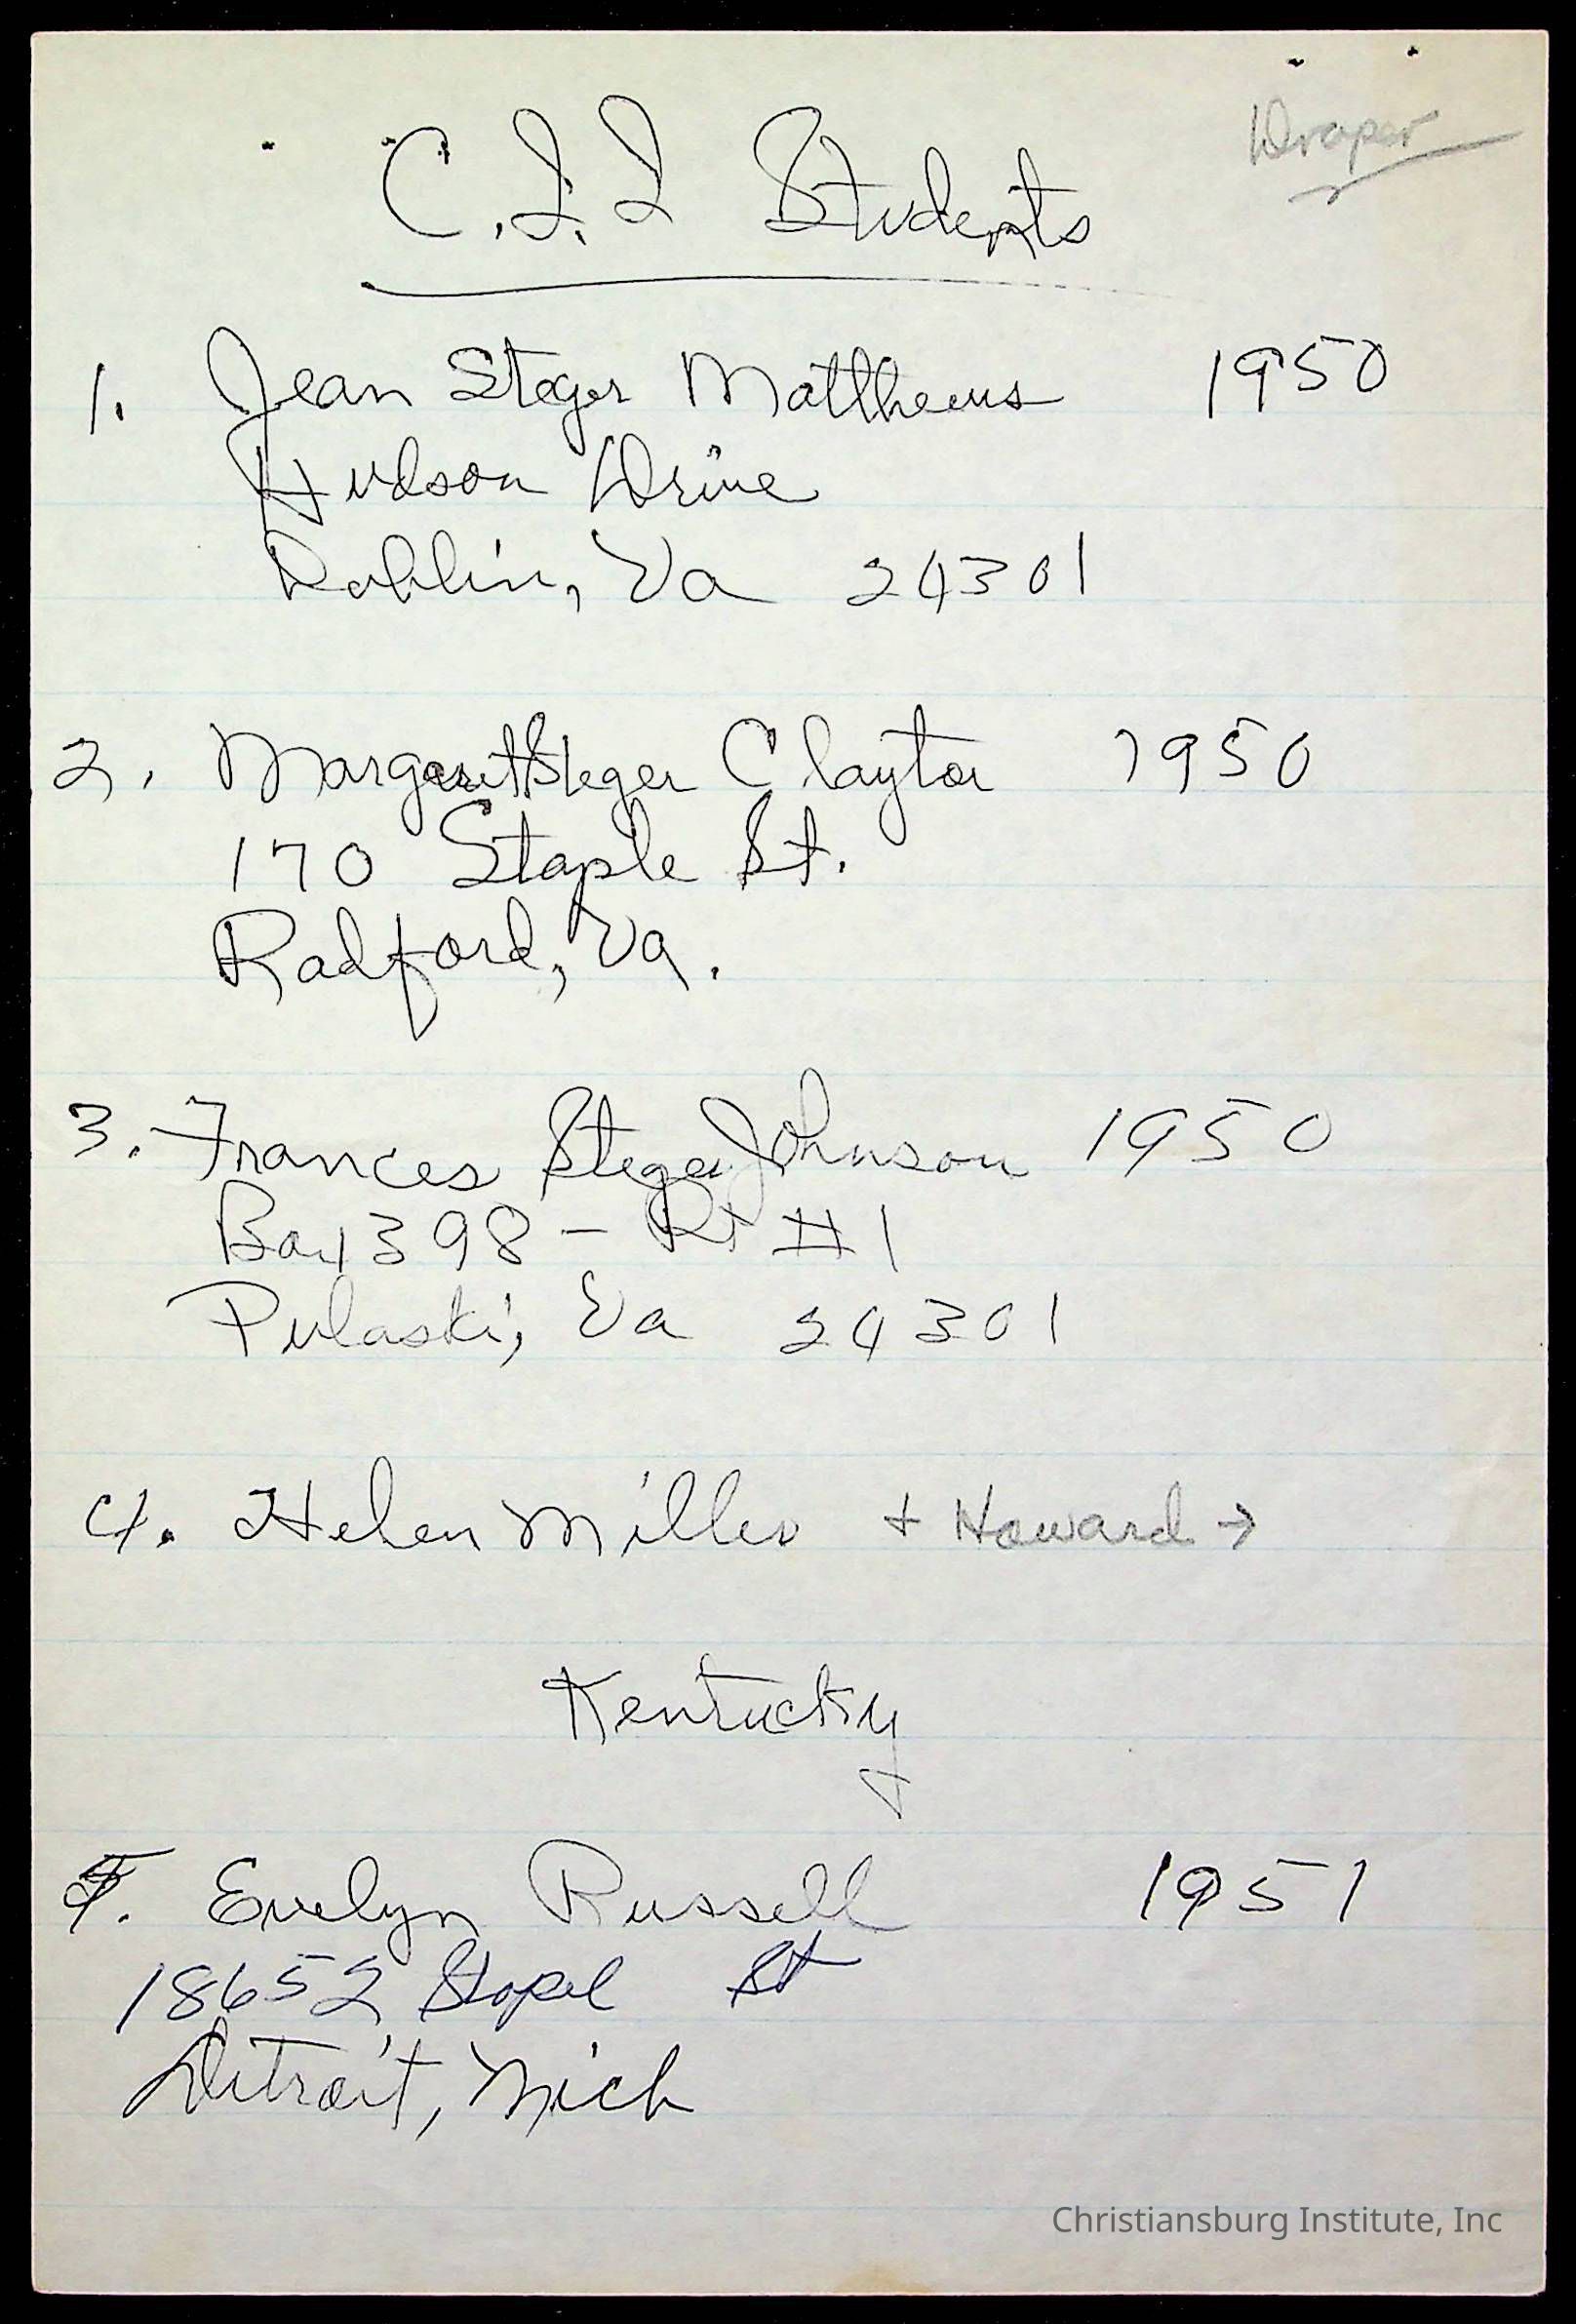 Draper
C.I.I Students
1. Jean Steger Matthews 1950
Hudson Drive
Dublin, Va 24301
2. Margaret Steger Claytor 1950
170 Staple St.
Radford, Va.
3. Frances Steger Johnson 1950
Box 398 - Rt #1
Pulaski, Va 24301
4. Helen Miller + Howard →
Kentucky
5. Evelyn Russell 1951
18652 Stopel St
Detroit, Mich
Christiansburg Institute, Inc